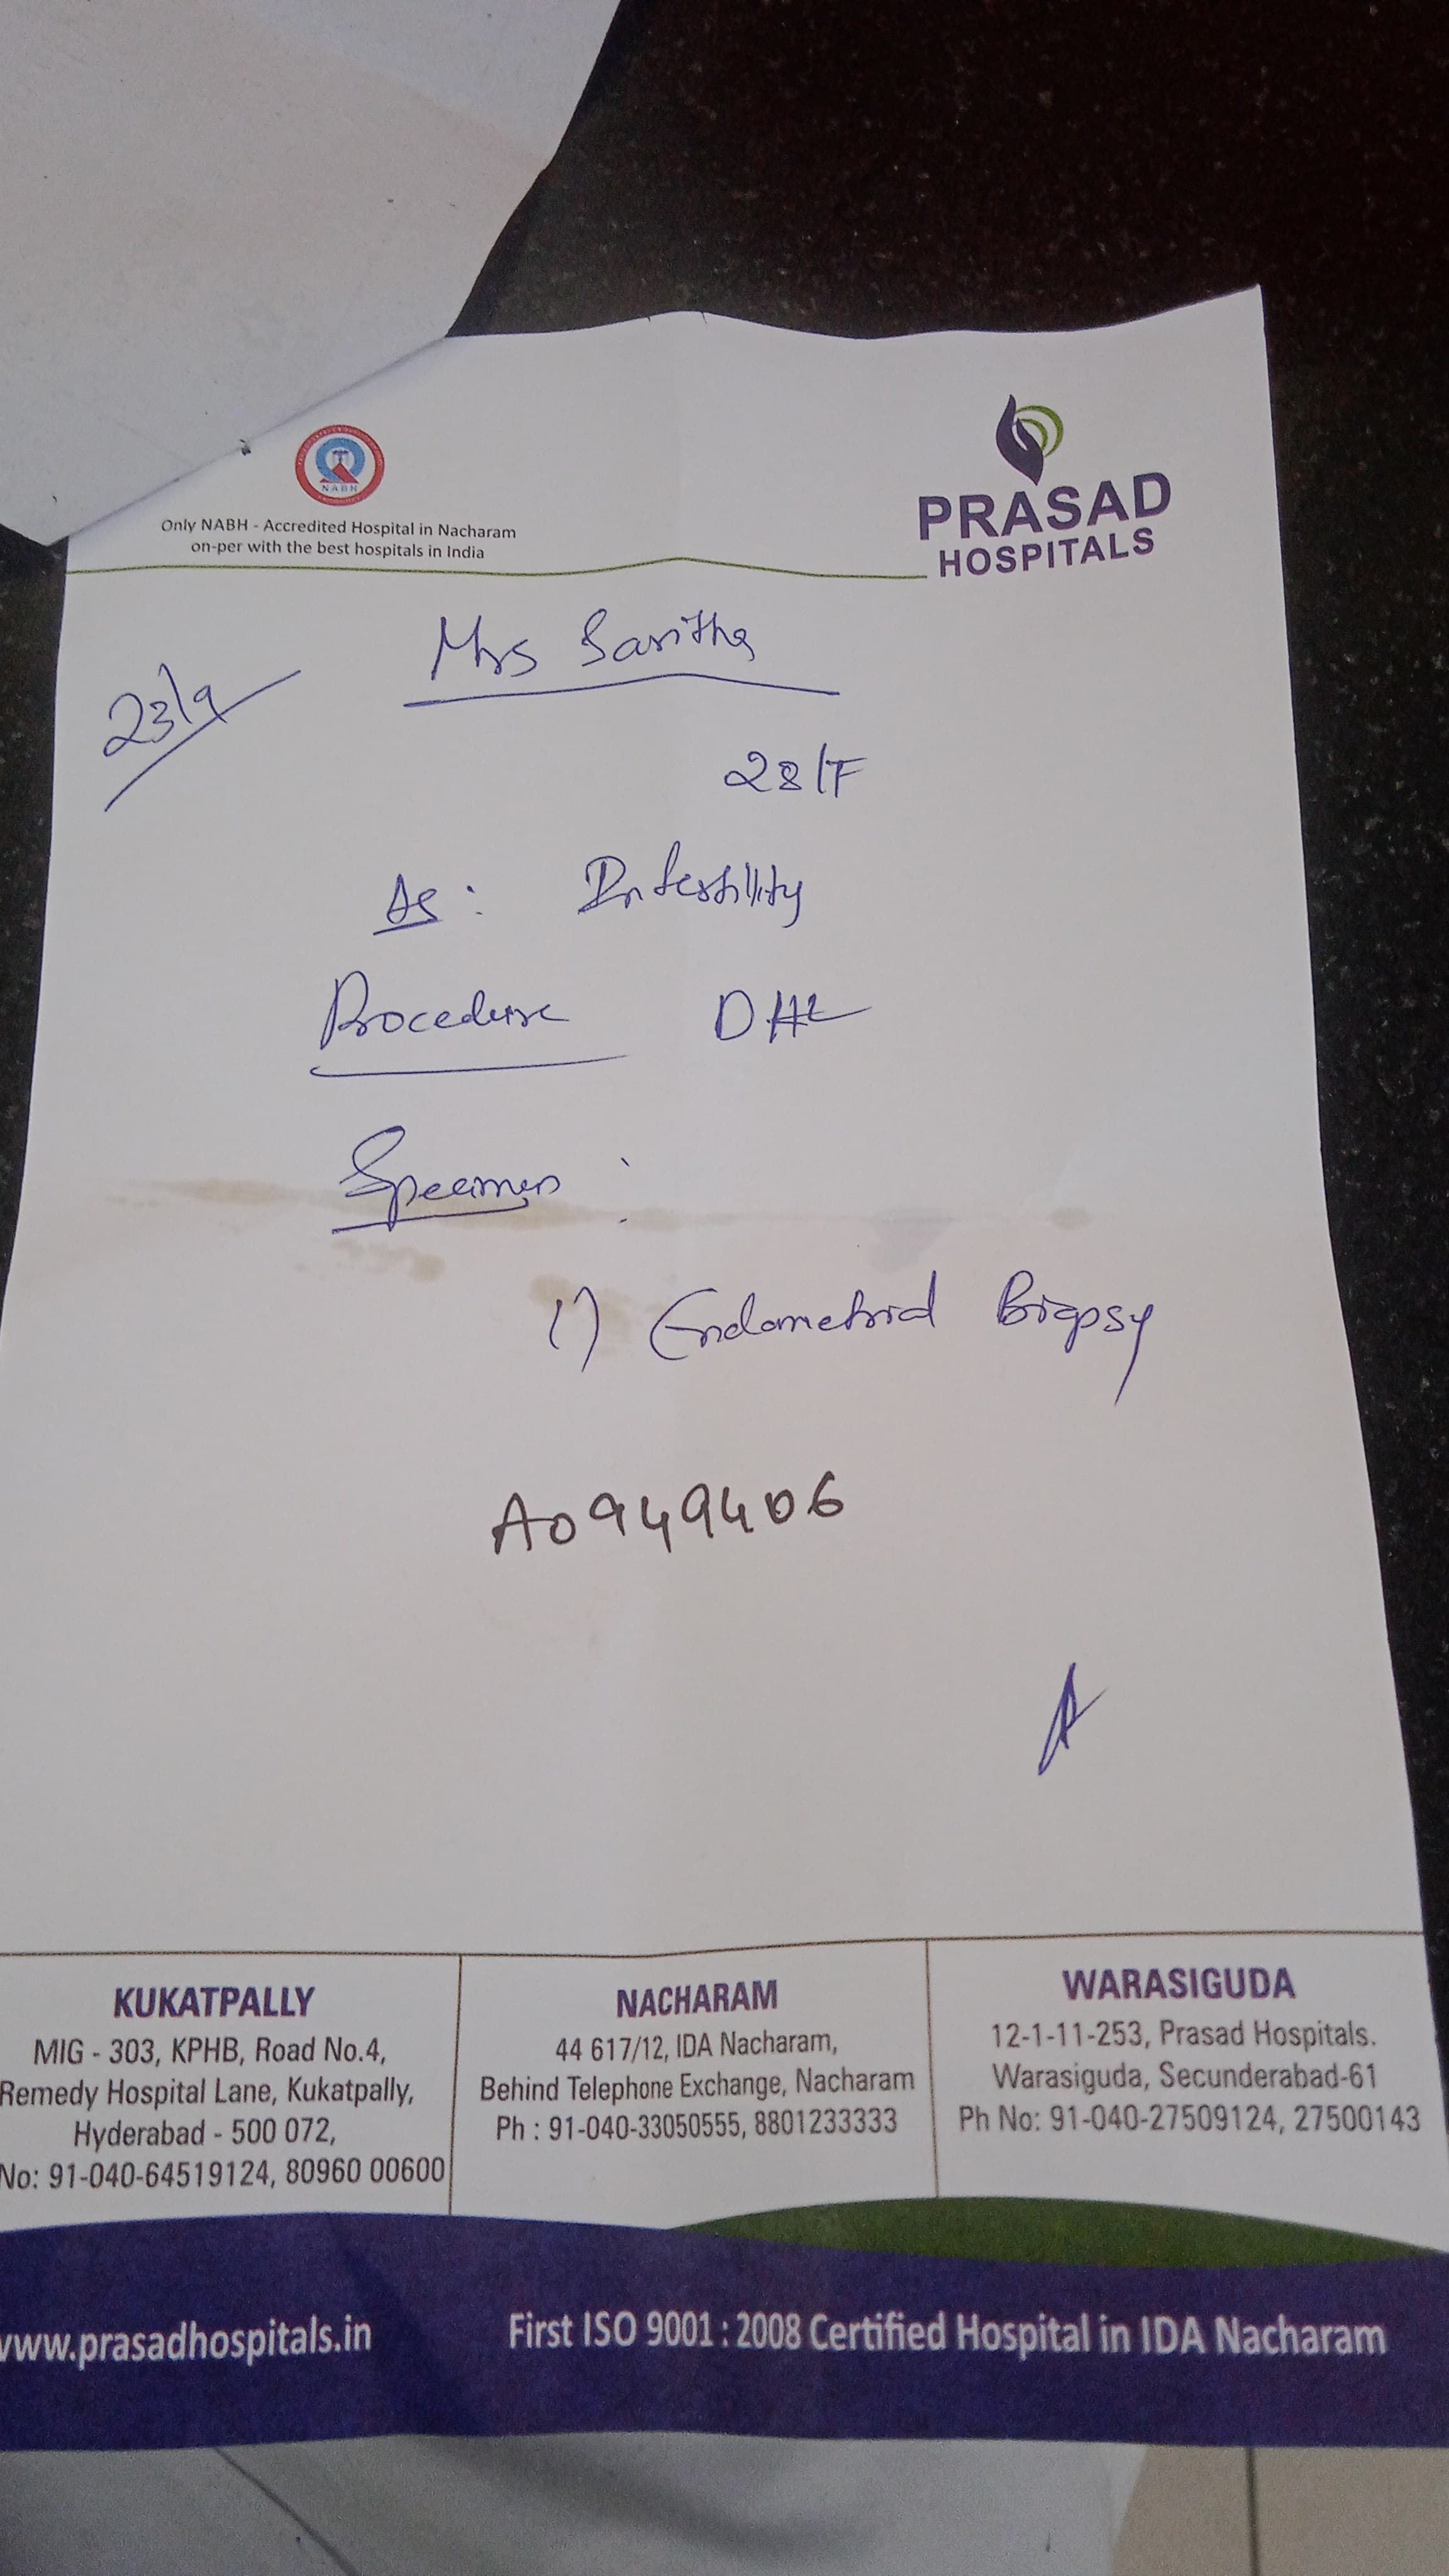 NABH
Only NABH - Accredited Hospital in Nacharam
on-per with the best hospitals in India
PRASAD
HOSPITALS
Mrs Saritha
23/9
28/F
Δs : Infertility
Procedure DHL
Specimen :
1) Endometrial Biopsy
A0949406
KUKATPALLY
MIG - 303, KPHB, Road No.4,
Remedy Hospital Lane, Kukatpally,
Hyderabad - 500 072,
No: 91-040-64519124, 80960 00600
NACHARAM
44 617/12, IDA Nacharam,
Behind Telephone Exchange, Nacharam
Ph : 91-040-33050555, 8801233333
WARASIGUDA
12-1-11-253, Prasad Hospitals.
Warasiguda, Secunderabad-61
Ph No: 91-040-27509124, 27500143
www.prasadhospitals.in
First ISO 9001 : 2008 Certified Hospital in IDA Nacharam